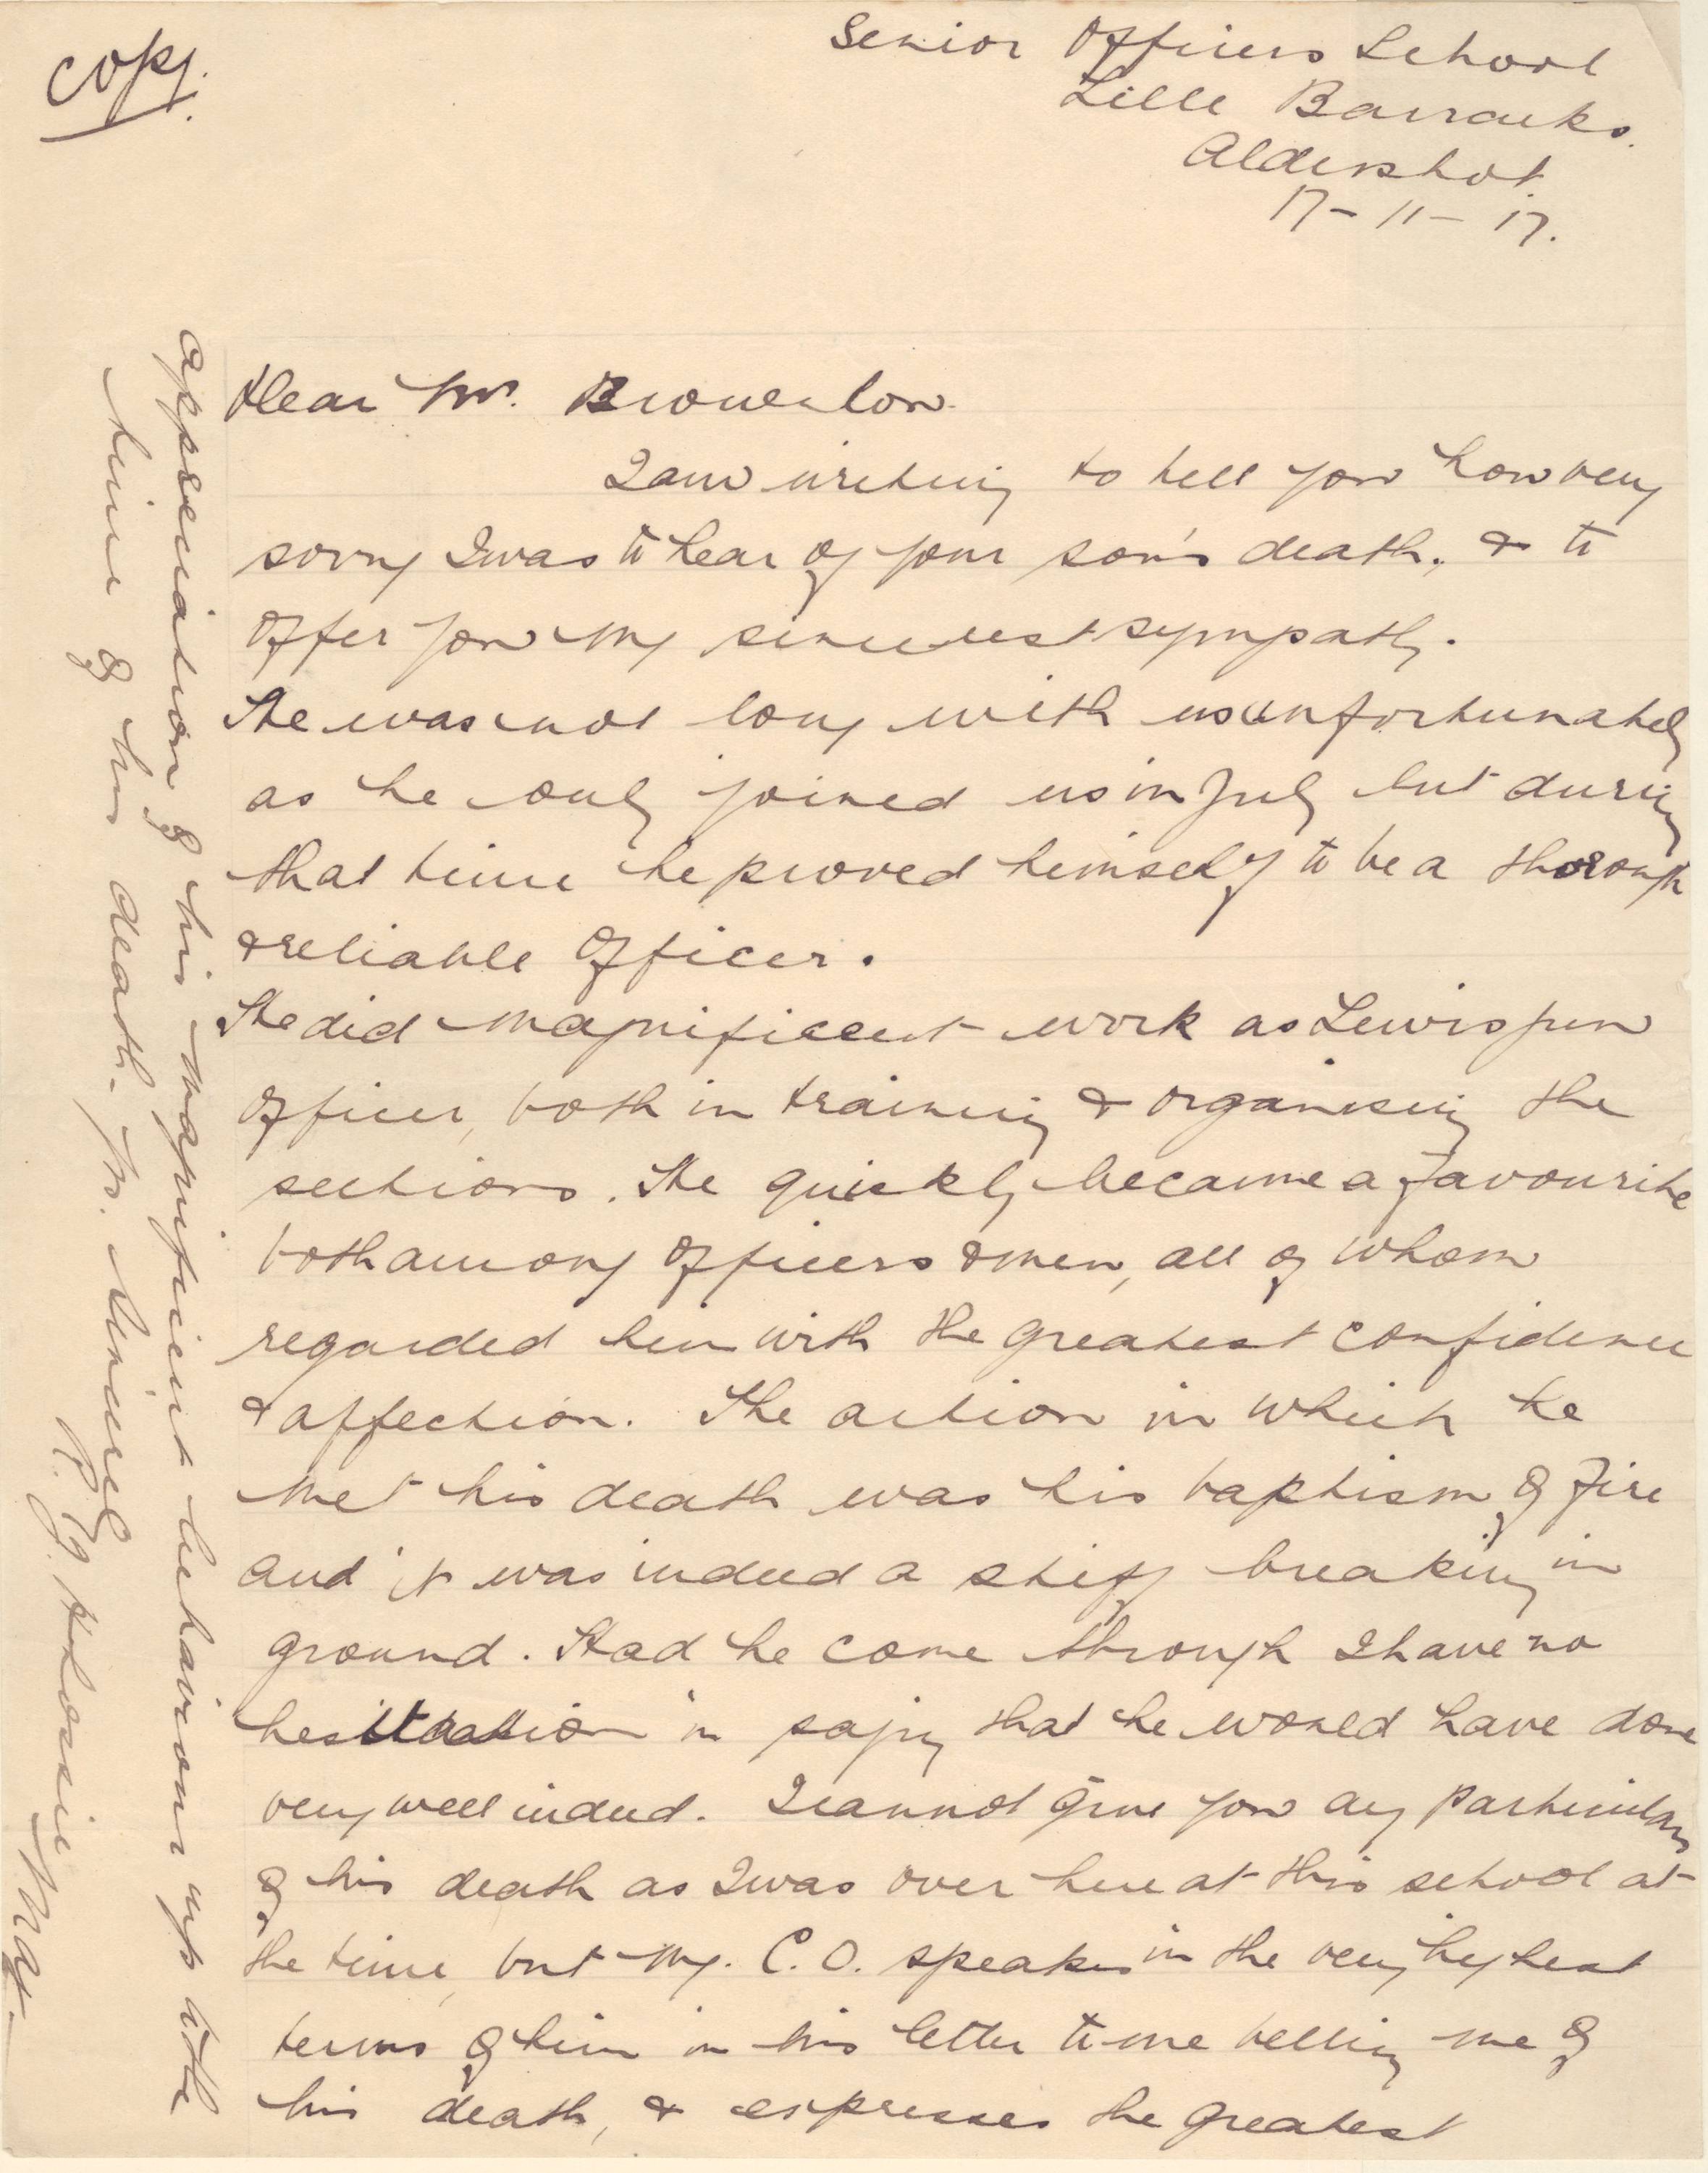 Copy.
Senior Officers School
Lille Barracks.
Aldershot.
17-11-17.
Dear Mr. Brownlow.
I am writing to tell you how very
sorry I was to hear of your son's death, & to
offer you my sincerest sympathy.
He was not long with us unfortunately
as he only joined us in July but during
that time he proved himself to be a thorough
& reliable Officer.
He did magnificent work as Lewis gun
Officer, both in training & organising the
sections. He quickly became a favourite
both among Officers & men, all of whom
regarded him with the greatest confidence
& affection. The action in which he
met his death was his baptism of fire
and it was indeed a stiff breaking in
ground. Had he come through I have no
hesitation in saying that he would have done
very well indeed. I cannot give you any particulars
of his death as I was over here at this school at
the time, but my. C.O. speaks in the very highest
terms of him in his letter to me telling me of
his death, & expresses the greatest
appreciation of his magnificent behaviour up to the
time of his death. Yrs. sincerely
Maj.